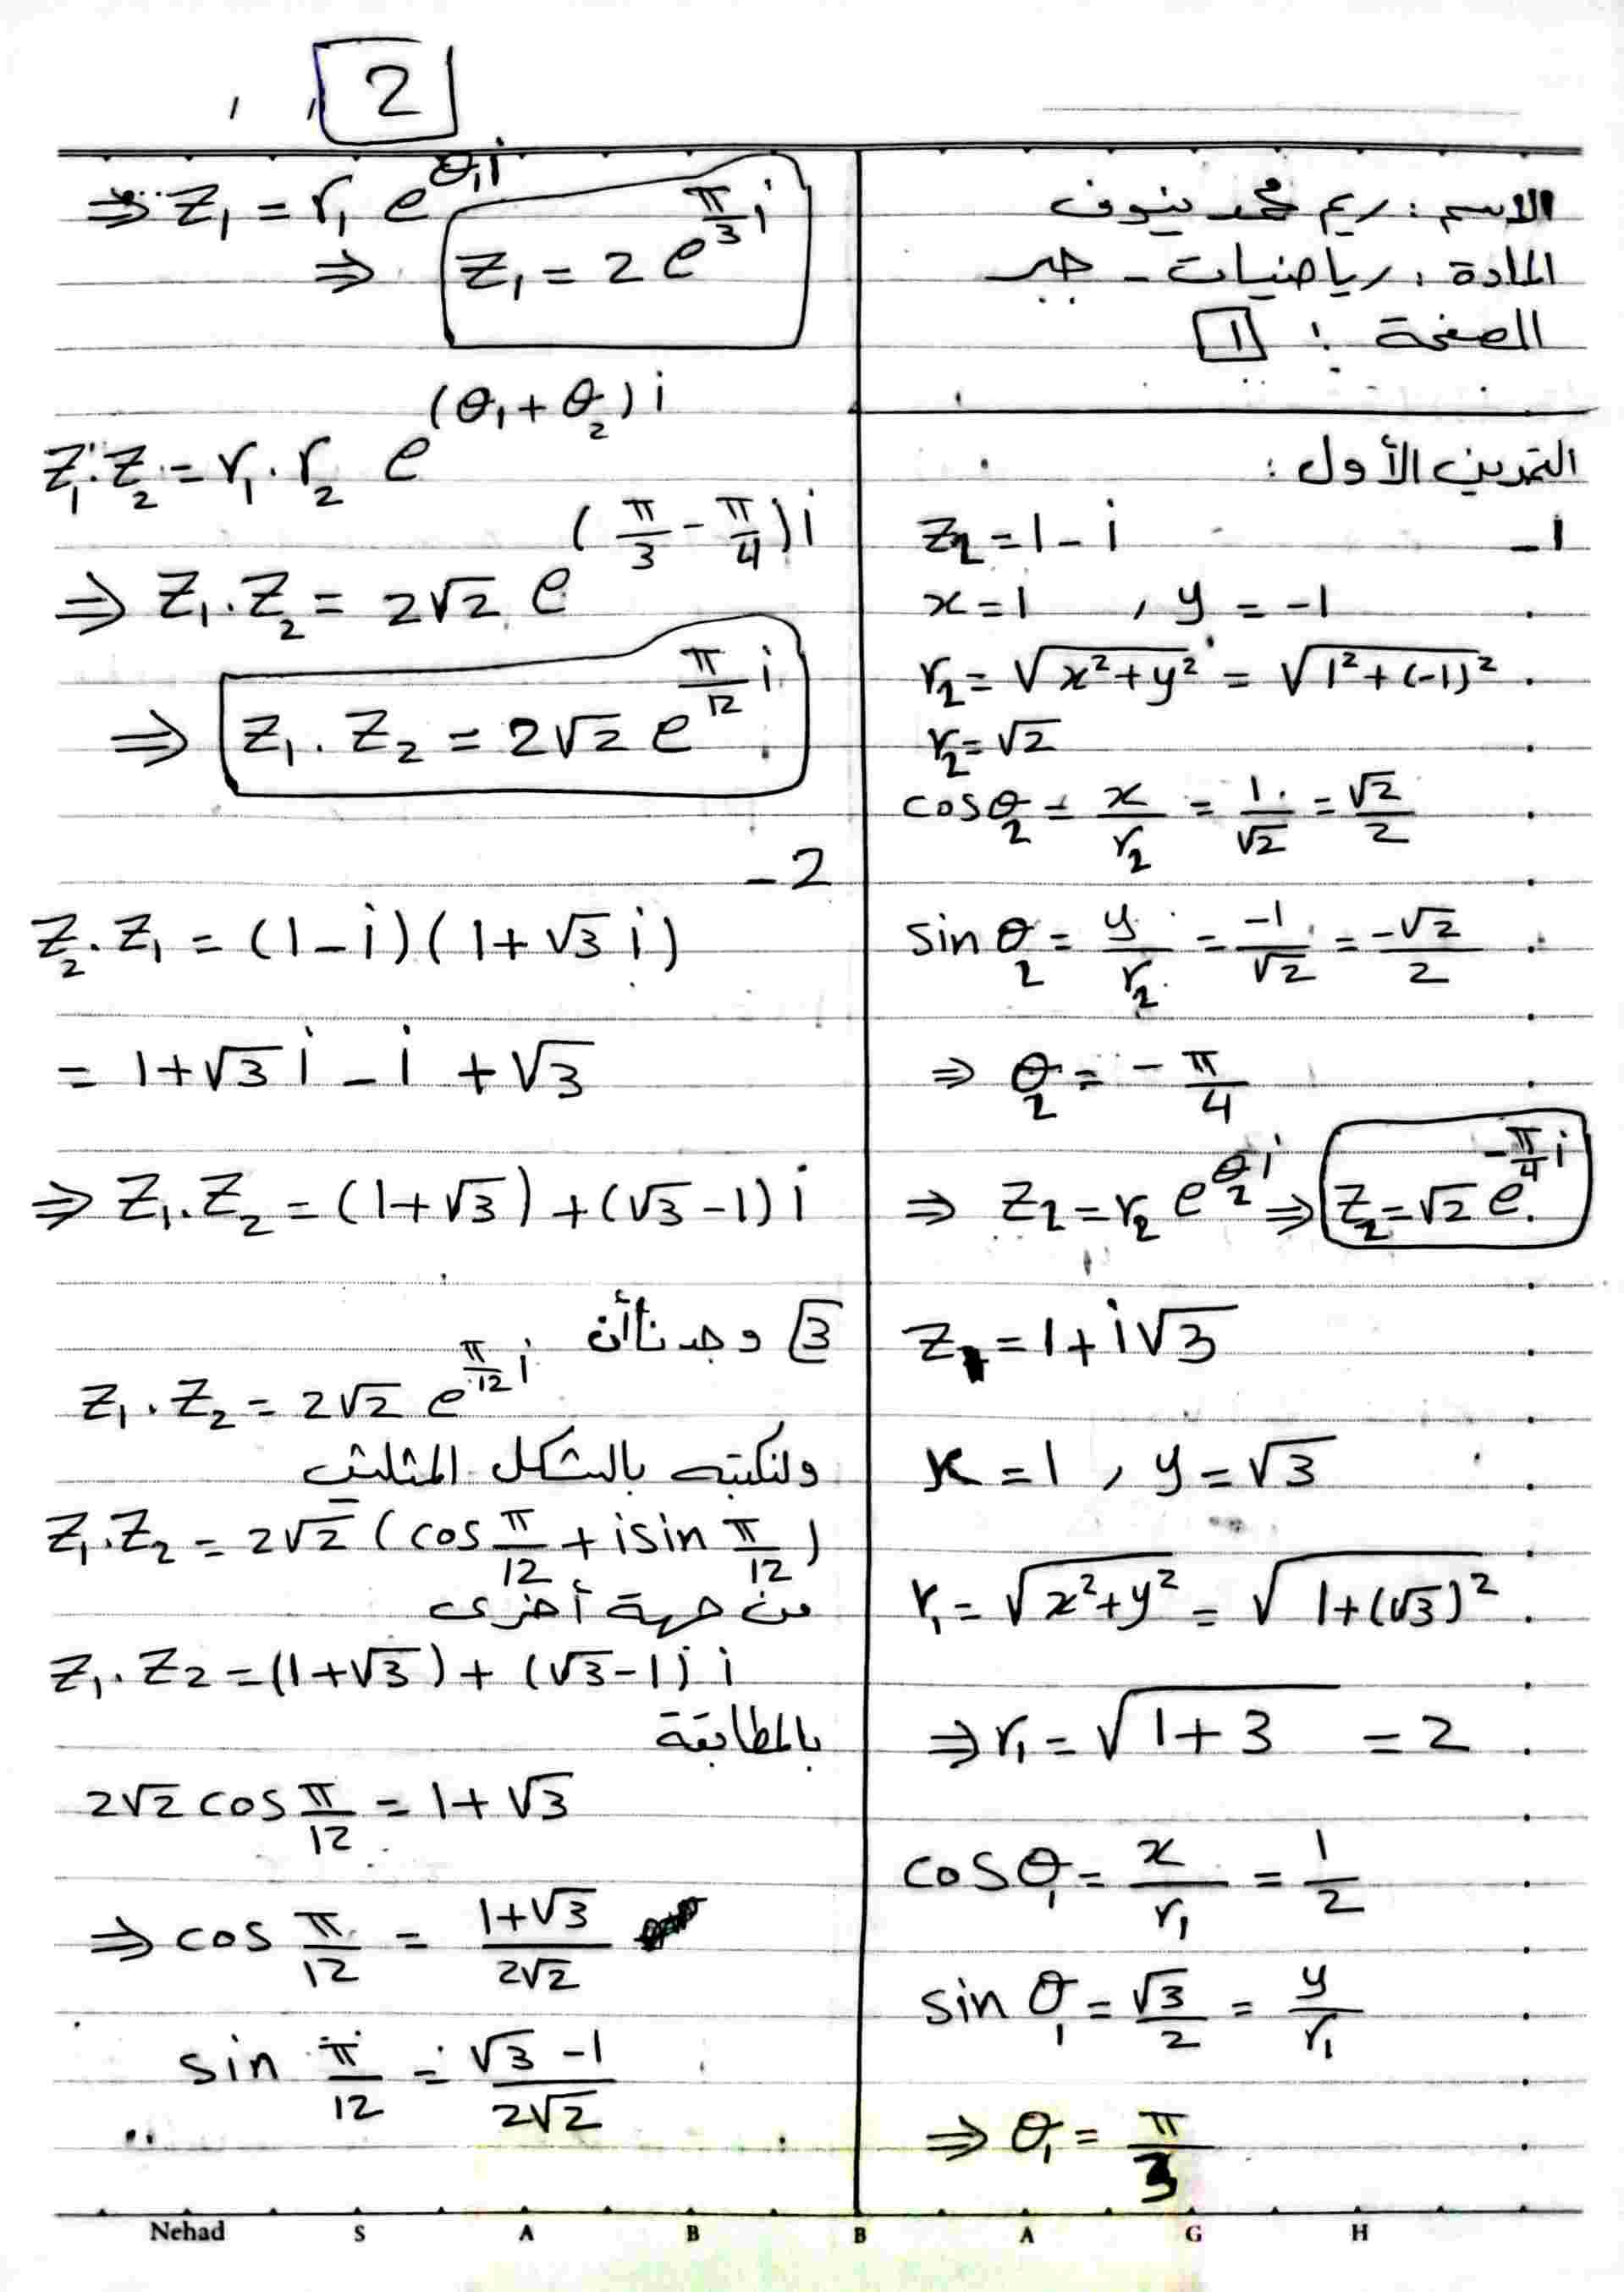 الاسم : ريم محمد بنوف
المادة : رياضيات - جبر
الصفحة : 1
التمرين الأول :
1-
z₂ = 1 - i
x = 1 , y = -1
r₂ = √(x² + y²) = √(1² + (-1)²)
r₂ = √2
cos θ₂ = x/r₂ = 1/√2 = √2/2
sin θ₂ = y/r₂ = -1/√2 = -√2/2
⇒ θ₂ = -π/4
⇒ z₂ = r₂ e^(θ₂ i) ⇒ z₂ = √2 e^(-π/4 i)
z₁ = 1 + i√3
x = 1 , y = √3
r₁ = √(x² + y²) = √(1 + (√3)²)
⇒ r₁ = √(1 + 3) = 2
cos θ₁ = x/r₁ = 1/2
sin θ₁ = √3/2 = y/r₁
⇒ θ₁ = π/3
2
⇒ z₁ = r₁ e^(θ₁ i)
⇒ z₁ = 2 e^(π/3 i)
z₁ . z₂ = r₁ . r₂ e^((θ₁ + θ₂) i)
⇒ z₁ . z₂ = 2√2 e^((π/3 - π/4) i)
⇒ z₁ . z₂ = 2√2 e^(π/12 i)
2-
z₂ . z₁ = (1 - i)(1 + √3 i)
= 1 + √3 i - i + √3
⇒ z₁ . z₂ = (1 + √3) + (√3 - 1) i
3 وجدنا أن
z₁ . z₂ = 2√2 e^(π/12 i)
ولنكتبه بالشكل المثلثي
z₁ . z₂ = 2√2 (cos π/12 + i sin π/12)
من جهة أخرى
z₁ . z₂ = (1 + √3) + (√3 - 1) i
بالمطابقة
2√2 cos π/12 = 1 + √3
⇒ cos π/12 = (1 + √3)/(2√2)
sin π/12 = (√3 - 1)/(2√2)
Nehad S A B B A G H